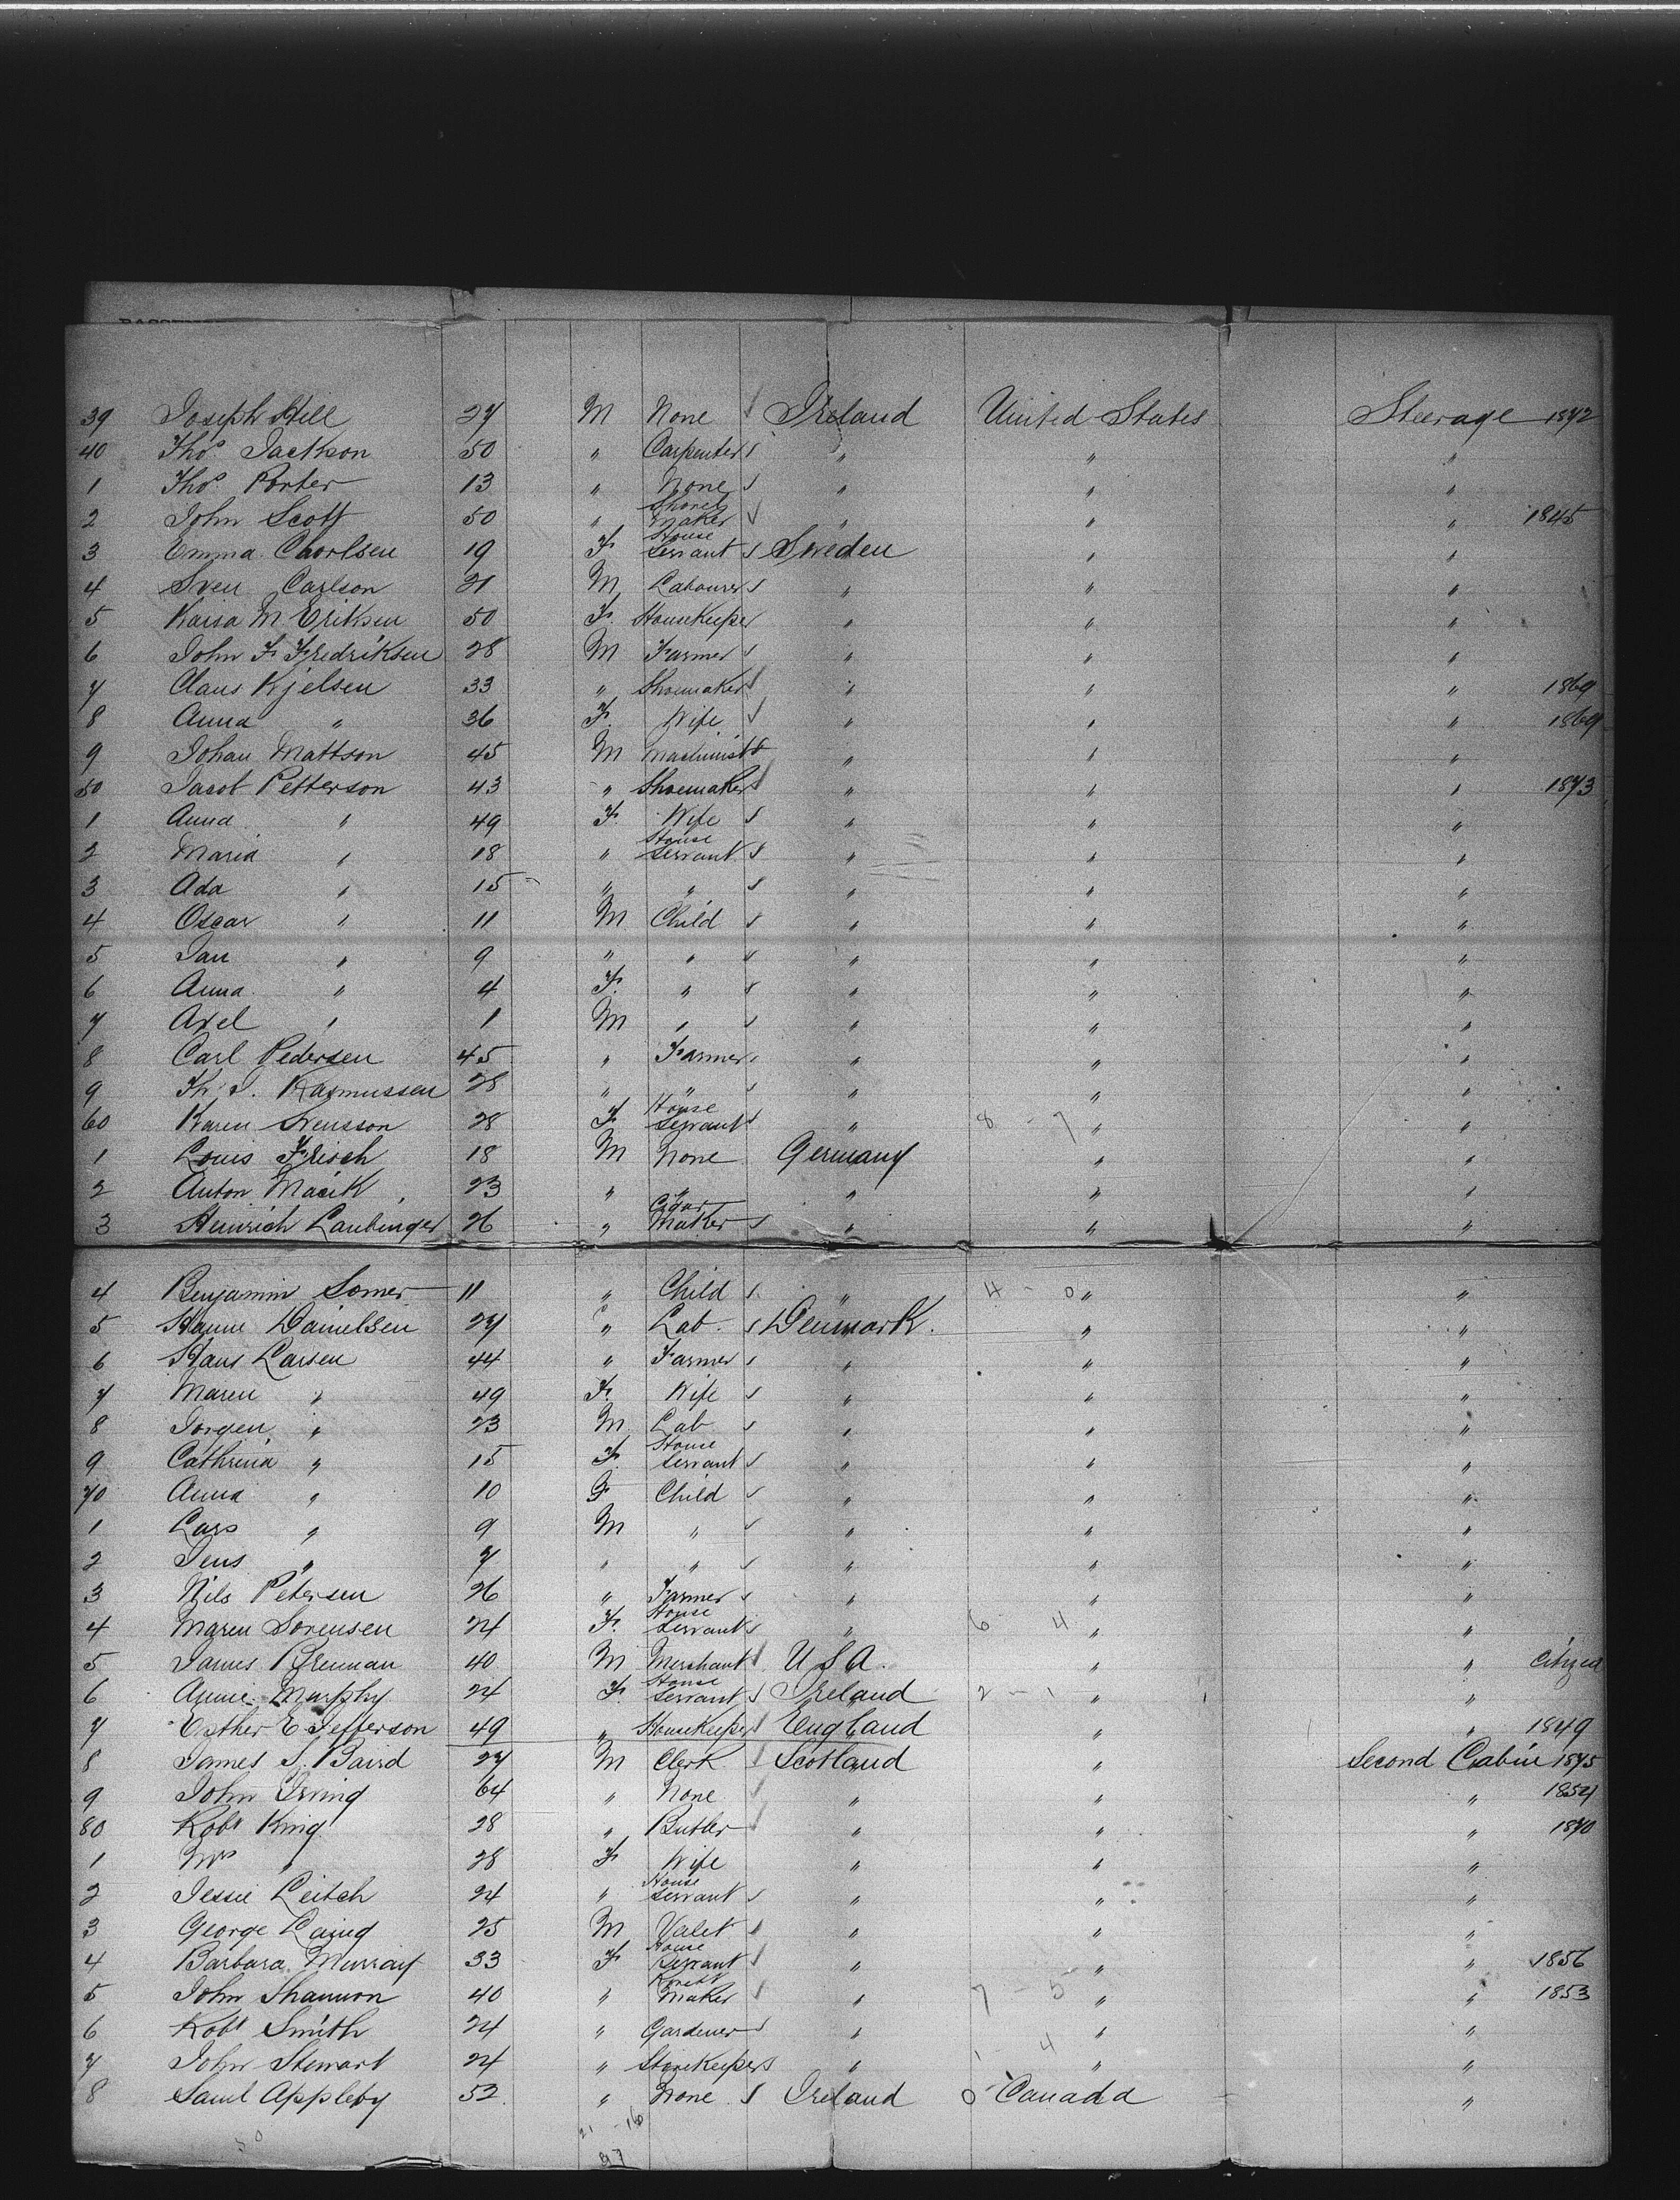 39 Joseph Hill 27 M None Ireland United States Steerage 1872
40 Thos Jackson 50 " Carpenter " " "
1 Thos Porter 13 " None " " "
2 John Scott 50 " maker " " " 1845
3 Emma Chorlsen 19 F House Servant Sweden " "
4 Sven Carlson 21 M Labourer " " "
5 Karsa M. Eriksen 50 F. Housekeeper " " "
6 John F Fredriksen 28 M Farmer " " "
7 Claus Kjelsen 33 " Shoemaker " " " 1869
8 Anna " 36 F. Wife " " " 1869
9 Johan Mattson 45 M Machinist " " "
50 Jacob Petterson 43 " Shoemaker " " " 1873
1 Anna " 49 F. Wife " " "
2 Maria " 18 " House Servant " " "
3 Ada " 15 " " " " "
4 Oscar " 11 M Child " " "
5 Jan " 9 " " " " "
6 Anna " 4 F. " " " "
7 Axel " 1 M " " " "
8 Carl Pedersen 45 " Farmer " " "
9 Th. J. Rasmussen 28 " " " " "
60 Karen Svensson 28 F House Servant " 8 - 7 " "
1 Louis Frisch 18 M None Germany " "
2 Anton Macik 23 " " " " "
3 Heinrich Laubinger 26 " Cigar Maker " " "
4 Benjamin Somer 11 " Child " 4 - 0 " "
5 Hanne Danielsen 27 " Lab. Denmark. " "
6 Hans Larsen 44 " Farmer " " "
7 Maren " 49 F. Wife " " "
8 Jorgen " 23 M Lab " " "
9 Cathrina " 15 F. House Servant " " "
70 Anna " 10 F Child " " "
1 Lars " 9 M " " " "
2 Jens " 7 " " " " "
3 Nils Petersen 26 " Farmer " " "
4 Maren Sorensen 24 F. House Servant " 6 4 " "
5 James Brennan 40 M Merchant U S A. " " Citizen
6 Annie Murphy 24 F. House Servant Ireland 2 - 1 " "
7 Esther E Jefferson 49 " Housekeeper England " " 1849
8 James S. Baird 27 M Clerk Scotland " Second Cabin 1875
9 John Irving 64 " None " " " 1854
80 Robt King 28 " Butler " " " 1870
1 Mrs " 28 F Wife " " "
2 Jessie Leitch 24 " House Servant " " "
3 George Laing 25 M Valet " " "
4 Barbara Murray 33 F House Servant " " " 1856
5 John Shannon 40 " Maker " 7 - 5 " " 1853
6 Robt Smith 24 " Gardener " " "
7 John Stewart 24 " Storekeeper " 1 - 4 " "
8 Saml Appleby 52 " None Ireland 0 - Canada "
21 - 16
50 37